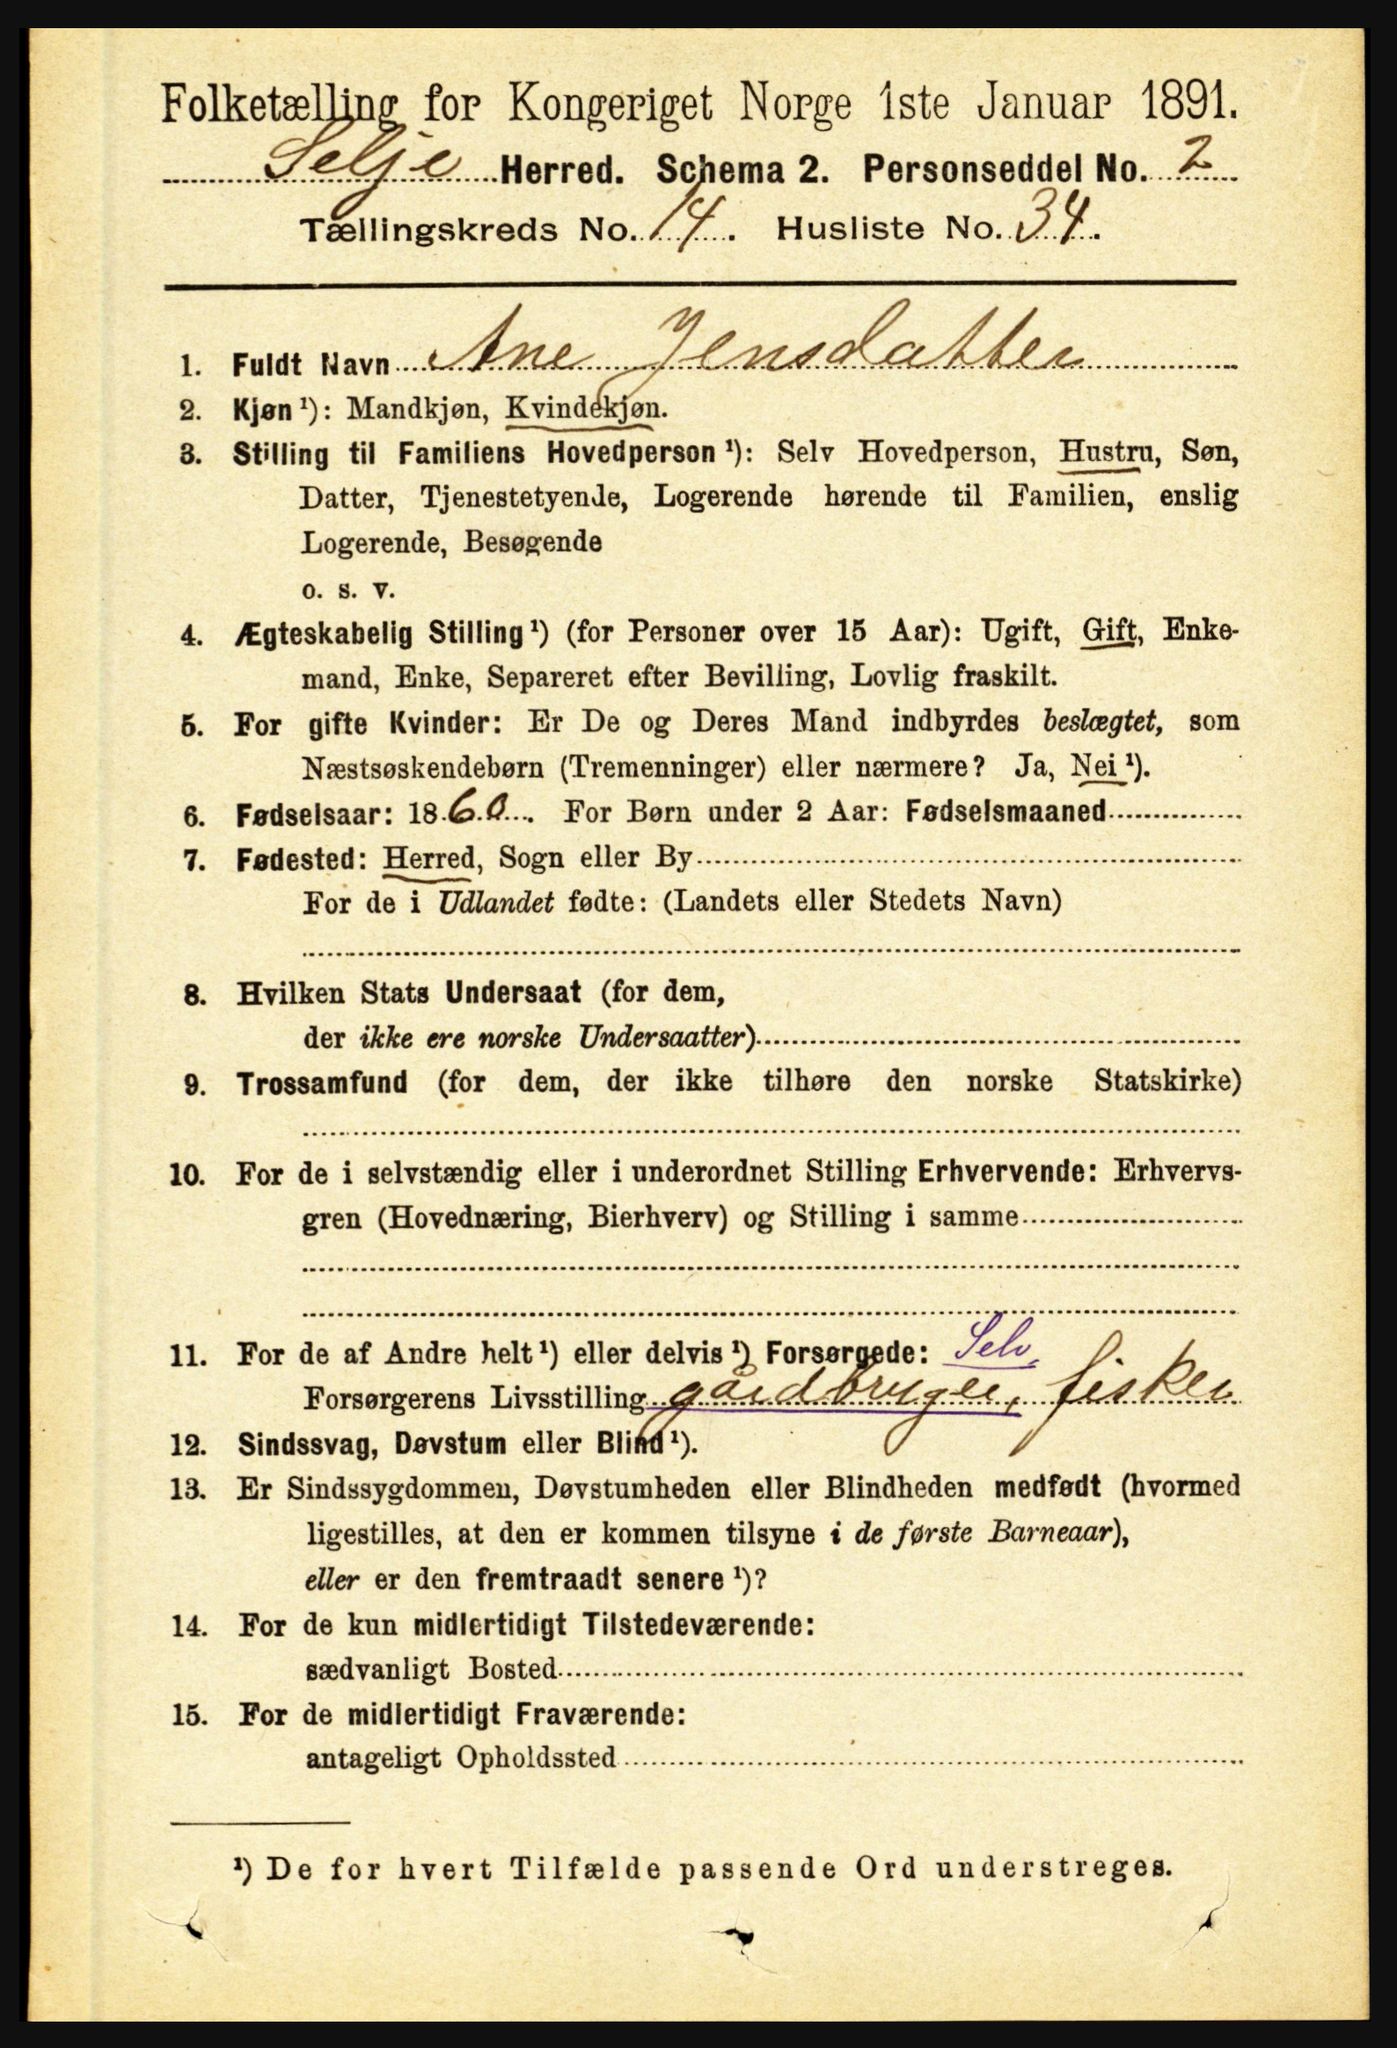 Folketælling for Kongeriget Norge 1ste Januar 1891.
Selje Herred. Schema 2. Personseddel No. 2
Tællingskreds No. 14. Husliste No. 34.
1. Fuldt Navn Ane Jensdatter
2. Kjøn ¹): Mandkjøn, Kvindekjøn.
3. Stilling til Familiens Hovedperson ¹): Selv Hovedperson, Hustru, Søn,
Datter, Tjenestetyende, Logerende hørende til Familien, enslig
Logerende, Besøgende
o. s. v.
4. Ægteskabelig Stilling ¹) (for Personer over 15 Aar): Ugift, Gift, Enke-
mand, Enke, Separeret efter Bevilling, Lovlig fraskilt.
5. For gifte Kvinder: Er De og Deres Mand indbyrdes beslægtet, som
Næstsøskendebørn (Tremenninger) eller nærmere? Ja, Nei ¹).
6. Fødselsaar: 1860. For Børn under 2 Aar: Fødselsmaaned
7. Fødested: Herred, Sogn eller By
For de i Udlandet fødte: (Landets eller Stedets Navn)
8. Hvilken Stats Undersaat (for dem,
der ikke ere norske Undersaatter)
9. Trossamfund (for dem, der ikke tilhøre den norske Statskirke)
10. For de i selvstændig eller i underordnet Stilling Erhvervende: Erhvervs-
gren (Hovednæring, Bierhverv) og Stilling i samme
11. For de af Andre helt ¹) eller delvis ¹) Forsørgede: Selv
Forsørgerens Livsstilling gårdbruger, fisker
12. Sindssvag, Døvstum eller Blind ¹).
13. Er Sindssygdommen, Døvstumheden eller Blindheden medfødt (hvormed
ligestilles, at den er kommen tilsyne i de første Barneaar),
eller er den fremtraadt senere ¹)?
14. For de kun midlertidigt Tilstedeværende:
sædvanligt Bosted
15. For de midlertidigt Fraværende:
antageligt Opholdssted
¹) De for hvert Tilfælde passende Ord understreges.